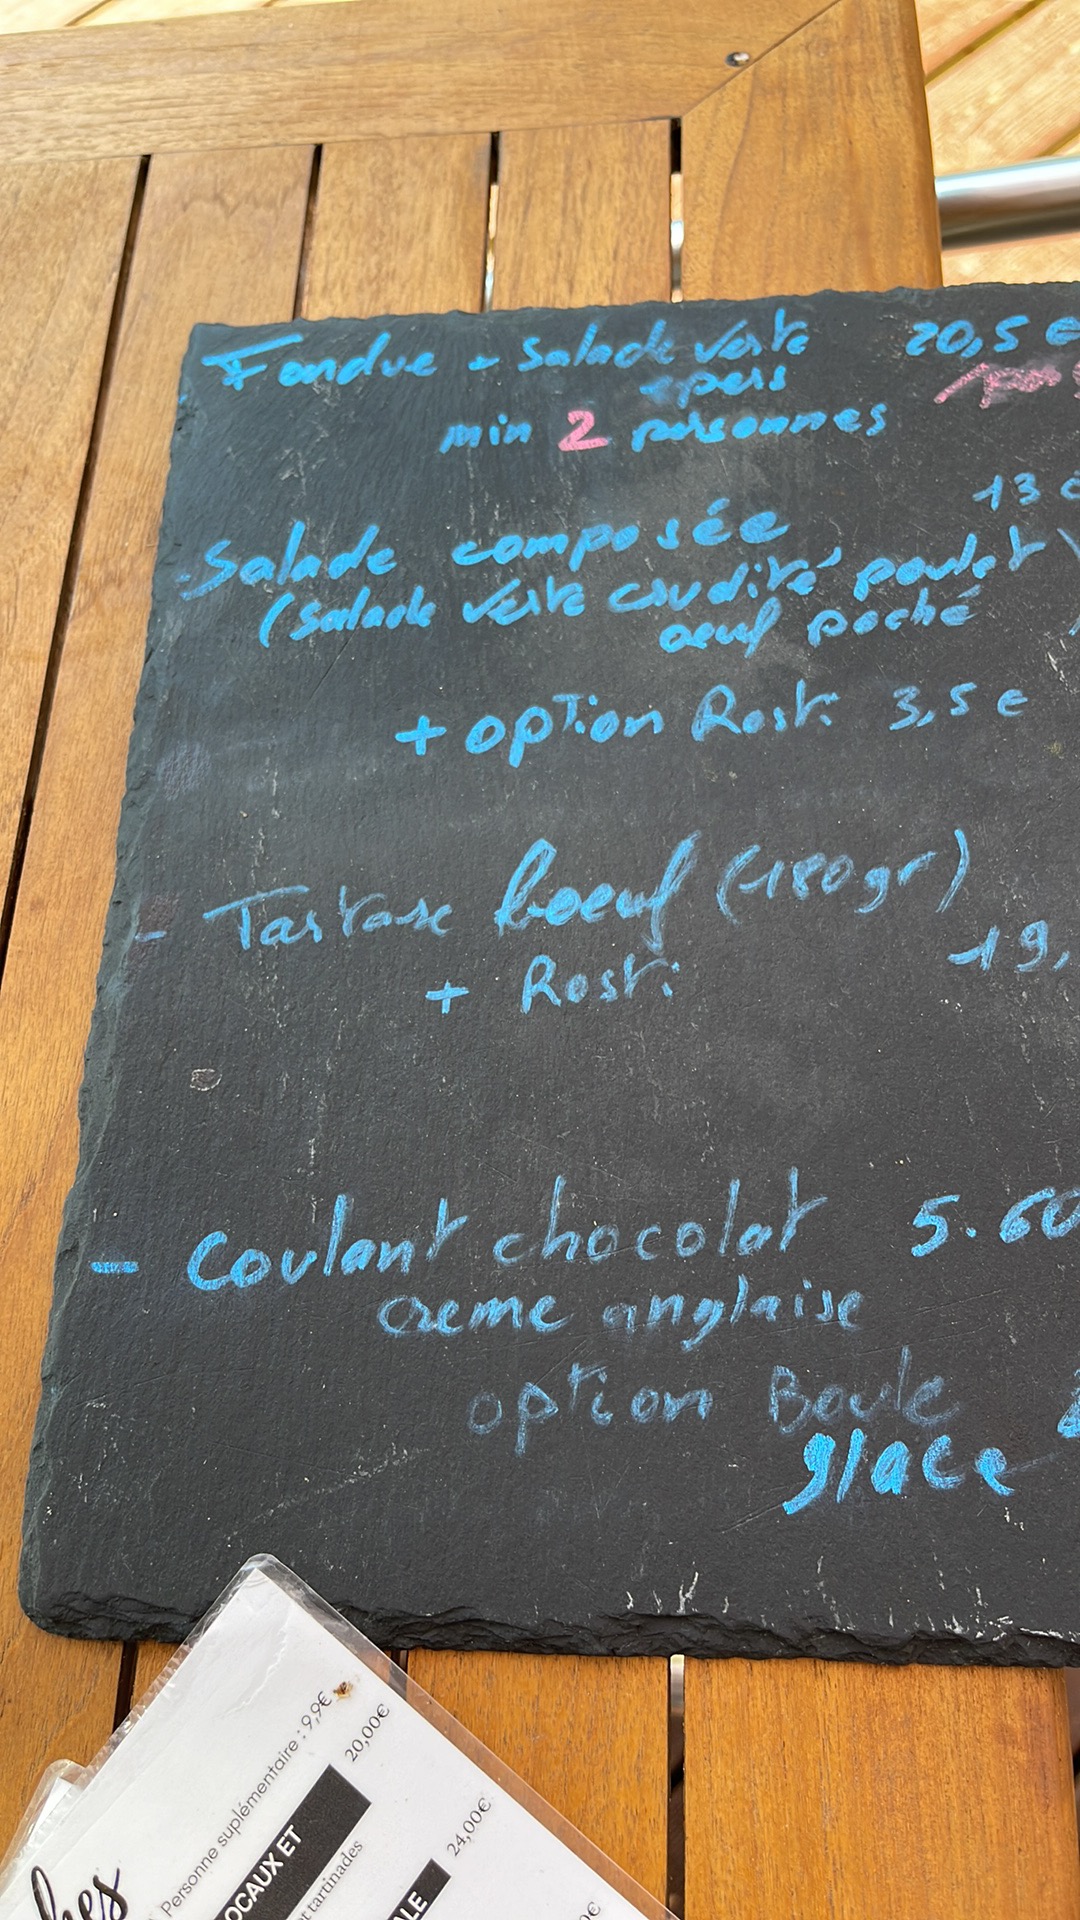 Fondue + Salade verte 20,5 €
/pers
min 2 personnes
- Salade composée 13 €
(salade verte crudité poulet
oeuf poché )
+ option Rosti 3,5 €
- Tartare boeuf (180gr)
+ Rosti 19,
- Coulant chocolat 5.60
creme anglaise
option Boule
glace
Personne suplémentaire : 9,9€
20,00€
OCAUX ET
t tartinades
24,00€
ALE
hes